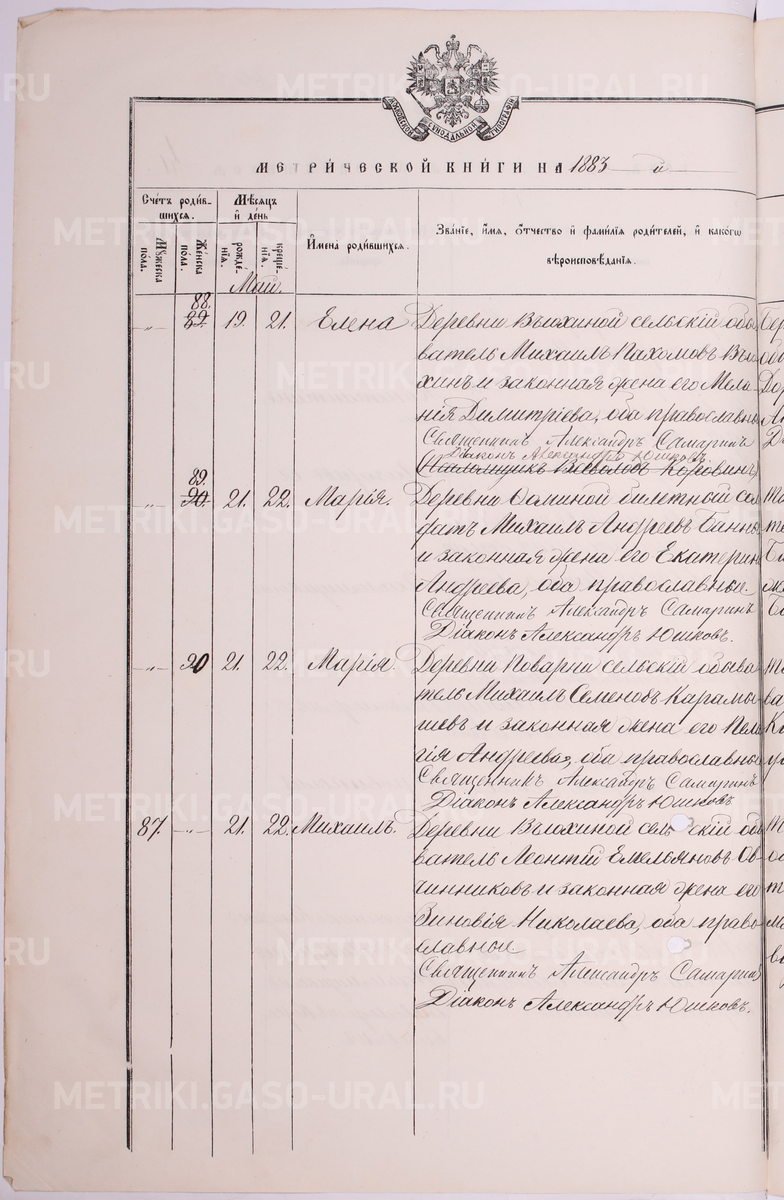 МОСКОВСКОЙ СѴНОДАЛЬНОЙ ТИПОГРАФІИ
МЕТРИ́ЧЕСКОЙ КНИ́ГИ НА 1883 й
Счетъ роди́в-
шихся.
Мѣсяцъ
и де́нь
Мꙋжеска
по́ла.
Же́нска
по́ла.
рожде́-
нїя.
креще́-
нїя.
Имена̀ роди́вшихся.
Зва́нїе, и́мя, ѻ҆́тчество и фами́лїя роди́телей, и како́гѡ
вѣроисповѣ́данїя.
Май.
88.
„ 89. 19. 21. Елена Деревни Вьюхиной сельскій обы-
ватель Михаилъ Пахомовъ Вью-
хинъ и законная жена его Мела-
нія Димитріева, оба православны
Священникъ Александръ Самаринъ
Діаконъ Александръ Юшковъ.
Псаломщикъ Всеволодъ Коровинъ
89.
„ 90. 21. 22. Марія. Деревни Осминой билетный сол-
датъ Михаилъ Андреевъ Банны
и законная жена его Екатерин
Андреева, оба православные.
Священникъ Александръ Самаринъ
Діаконъ Александръ Юшковъ.
„ 90 21. 22. Марія. Деревни Поварни сельскій обыва-
тель Михаилъ Семеновъ Карамы-
шевъ и законная жена его Пела
гія Андреева, оба православные
Священникъ Александръ Самаринъ
Діаконъ Александръ Юшковъ
87. „ 21. 22. Михаилъ. Деревни Вьюхиной сельскій обы
ватель Леонтій Емельяновъ Ов-
чинниковъ и законная жена его
Зиновія Николаева, оба право-
славные
Священникъ Александръ Самаринъ
Діаконъ Александръ Юшковъ.
METRIKI.GASO-URAL.RU